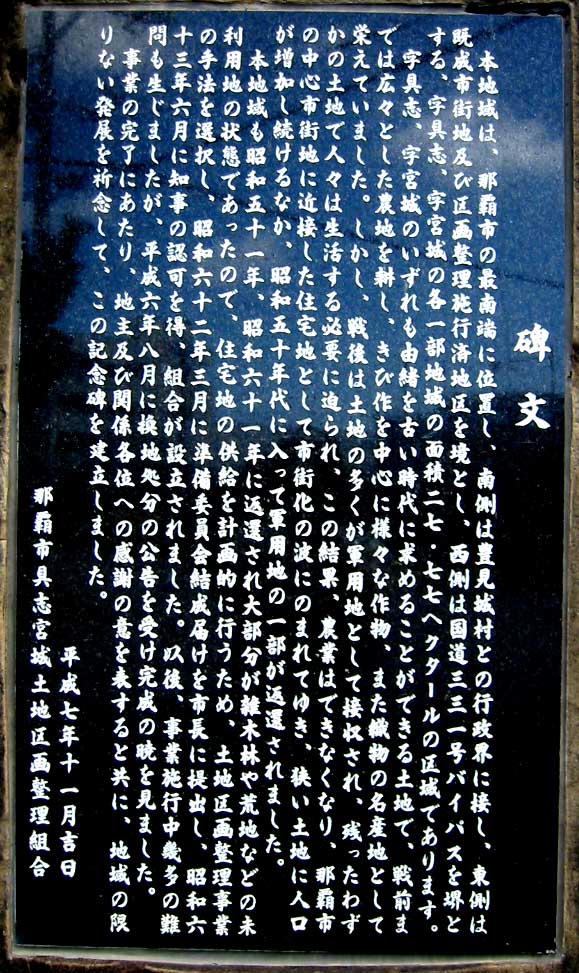 碑文
本地域は、那覇市の最南端に位置し、南側は豊見城村との行政界に接し、東側は
既成市街地及び区画整理施行済地区を境とし、西側は国道三三一号バイパスを堺と
する、字具志、字宮城の各一部地域の面積二七・七七ヘクタールの区域であります。
字具志、字宮城のいずれも由緒を古い時代に求めることができる土地で、戦前ま
では広々とした農地を耕し、きび作を中心に様々な作物、また織物の名産地として
栄えていました。しかし、戦後は土地の多くが軍用地として接収され、残ったわず
かの土地で人々は生活する必要に迫られ、この結果、農業はできなくなり、那覇市
の中心市街地に近接した住宅地として市街化の波にのまれてゆき、狭い土地に人口
が増加し続けるなか、昭和五十年代に入って軍用地の一部が返還されました。
本地域も昭和五十一年、昭和六十一年に返還され大部分が雑木林や荒地などの未
利用地の状態であったので、住宅地の供給を計画的に行うため、土地区画整理事業
の手法を選択し、昭和六十二年三月に準備委員会結成届けを市長に提出し、昭和六
十三年六月に知事の認可を得、組合が設立されました。以後、事業施行中幾多の難
問も生じましたが、平成六年八月に換地処分の公告を受け完成の暁を見ました。
事業の完了にあたり、地主及び関係各位への感謝の意を表すると共に、地域の限
りない発展を祈念して、この記念碑を建立しました。
平成七年十一月吉日
那覇市具志宮城土地区画整理組合